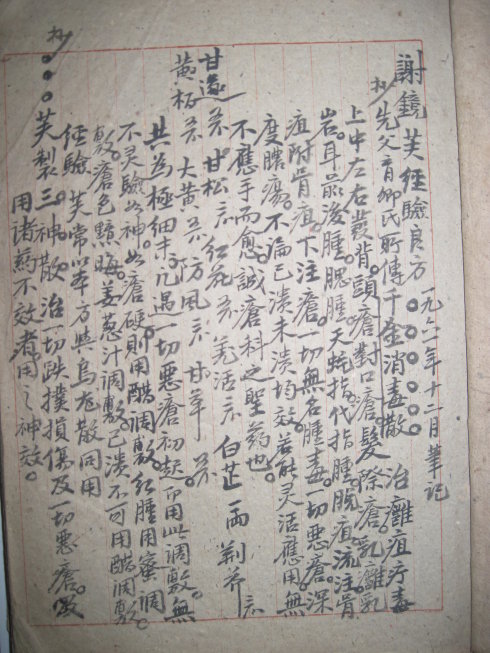 謝鏡芙經驗良方 一九六一年十二月筆記
抄先父育卿氏所傳千金消毒散 治癰疽疔毒
上中左右發背。頭瘡對口瘡髮際瘡。乳癰乳
岩。耳前後腫。腮腫天蛇指代指腫脫疽流注骨
疽附骨疽。下注瘡。一切無名腫毒。一切惡瘡。深
度膿瘍。不論已潰未潰均效。若能灵活應用無
不應手而愈。誠瘡科之聖葯也。
甘遂 甘松 紅花 羌活 白芷一兩 荊芥
黃柏 大黃 防風 甘草
共為極細末凡遇一切惡瘡初起即用此調敷。無
不灵驗如神。如瘡硬即用醋調敷紅腫用蜜調
敷。瘡色黯晦。姜葱汁調敷。已潰不可用醋調敷
經驗 芙常以本方與烏龙散同用
抄
芙製三神散 治一切跌撲損傷及一切惡瘡。
用諸葯不效者。用之神效。